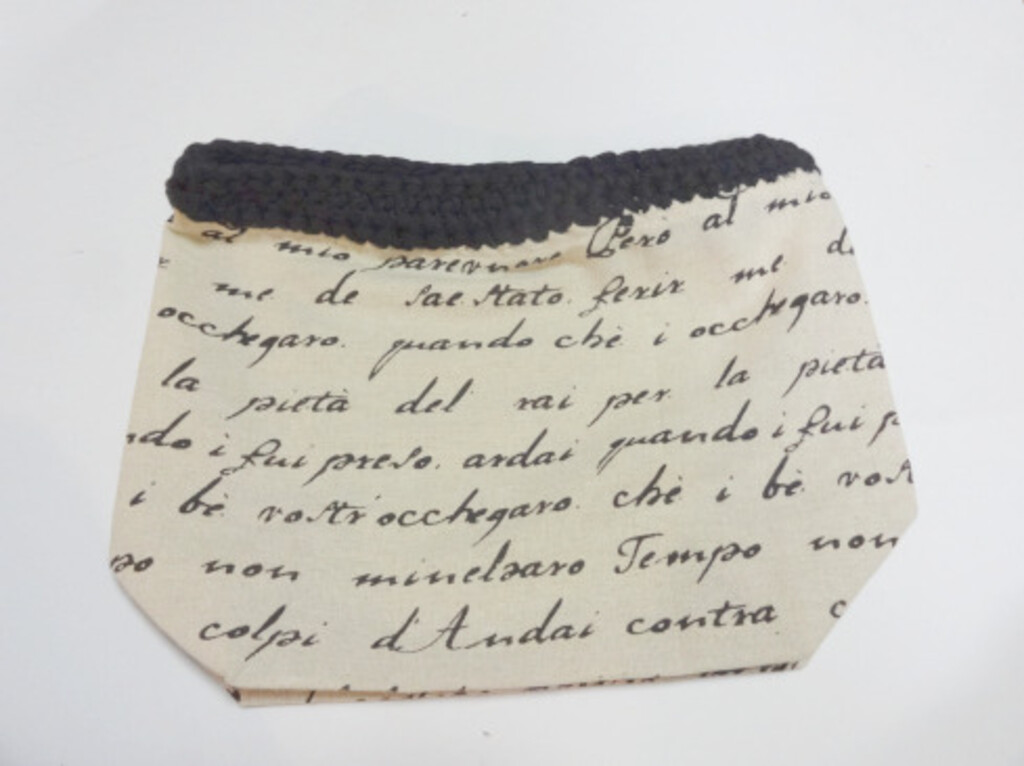 al mio parevnare Però al mio
me de sae stato. ferir me d
occhegaro. quando chè i occhegaro.
la pietà del rai per la pietà
ndo i fui preso. ardai quando i fui p
i bè vostr occhegaro chè i bè vost
po non minelsaro Tempo non
colpi d'Andai contra c